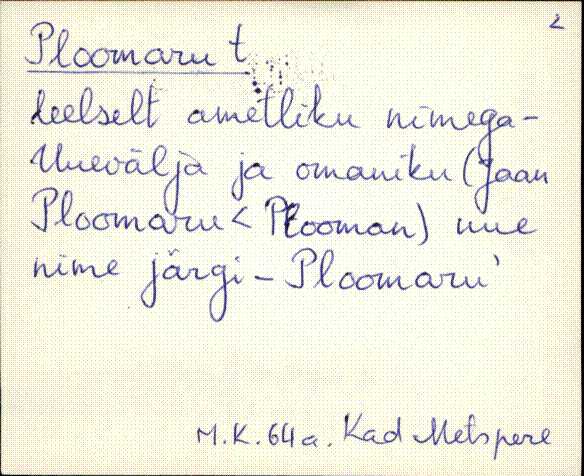 2
Ploomaru t
eelselt ametliku nimega-
Uuevälja ja omaniku (Jaan
Ploomaru < Plooman) uue
nime järgi - Ploomaru'
M.K. 64 a. Kad Metspere